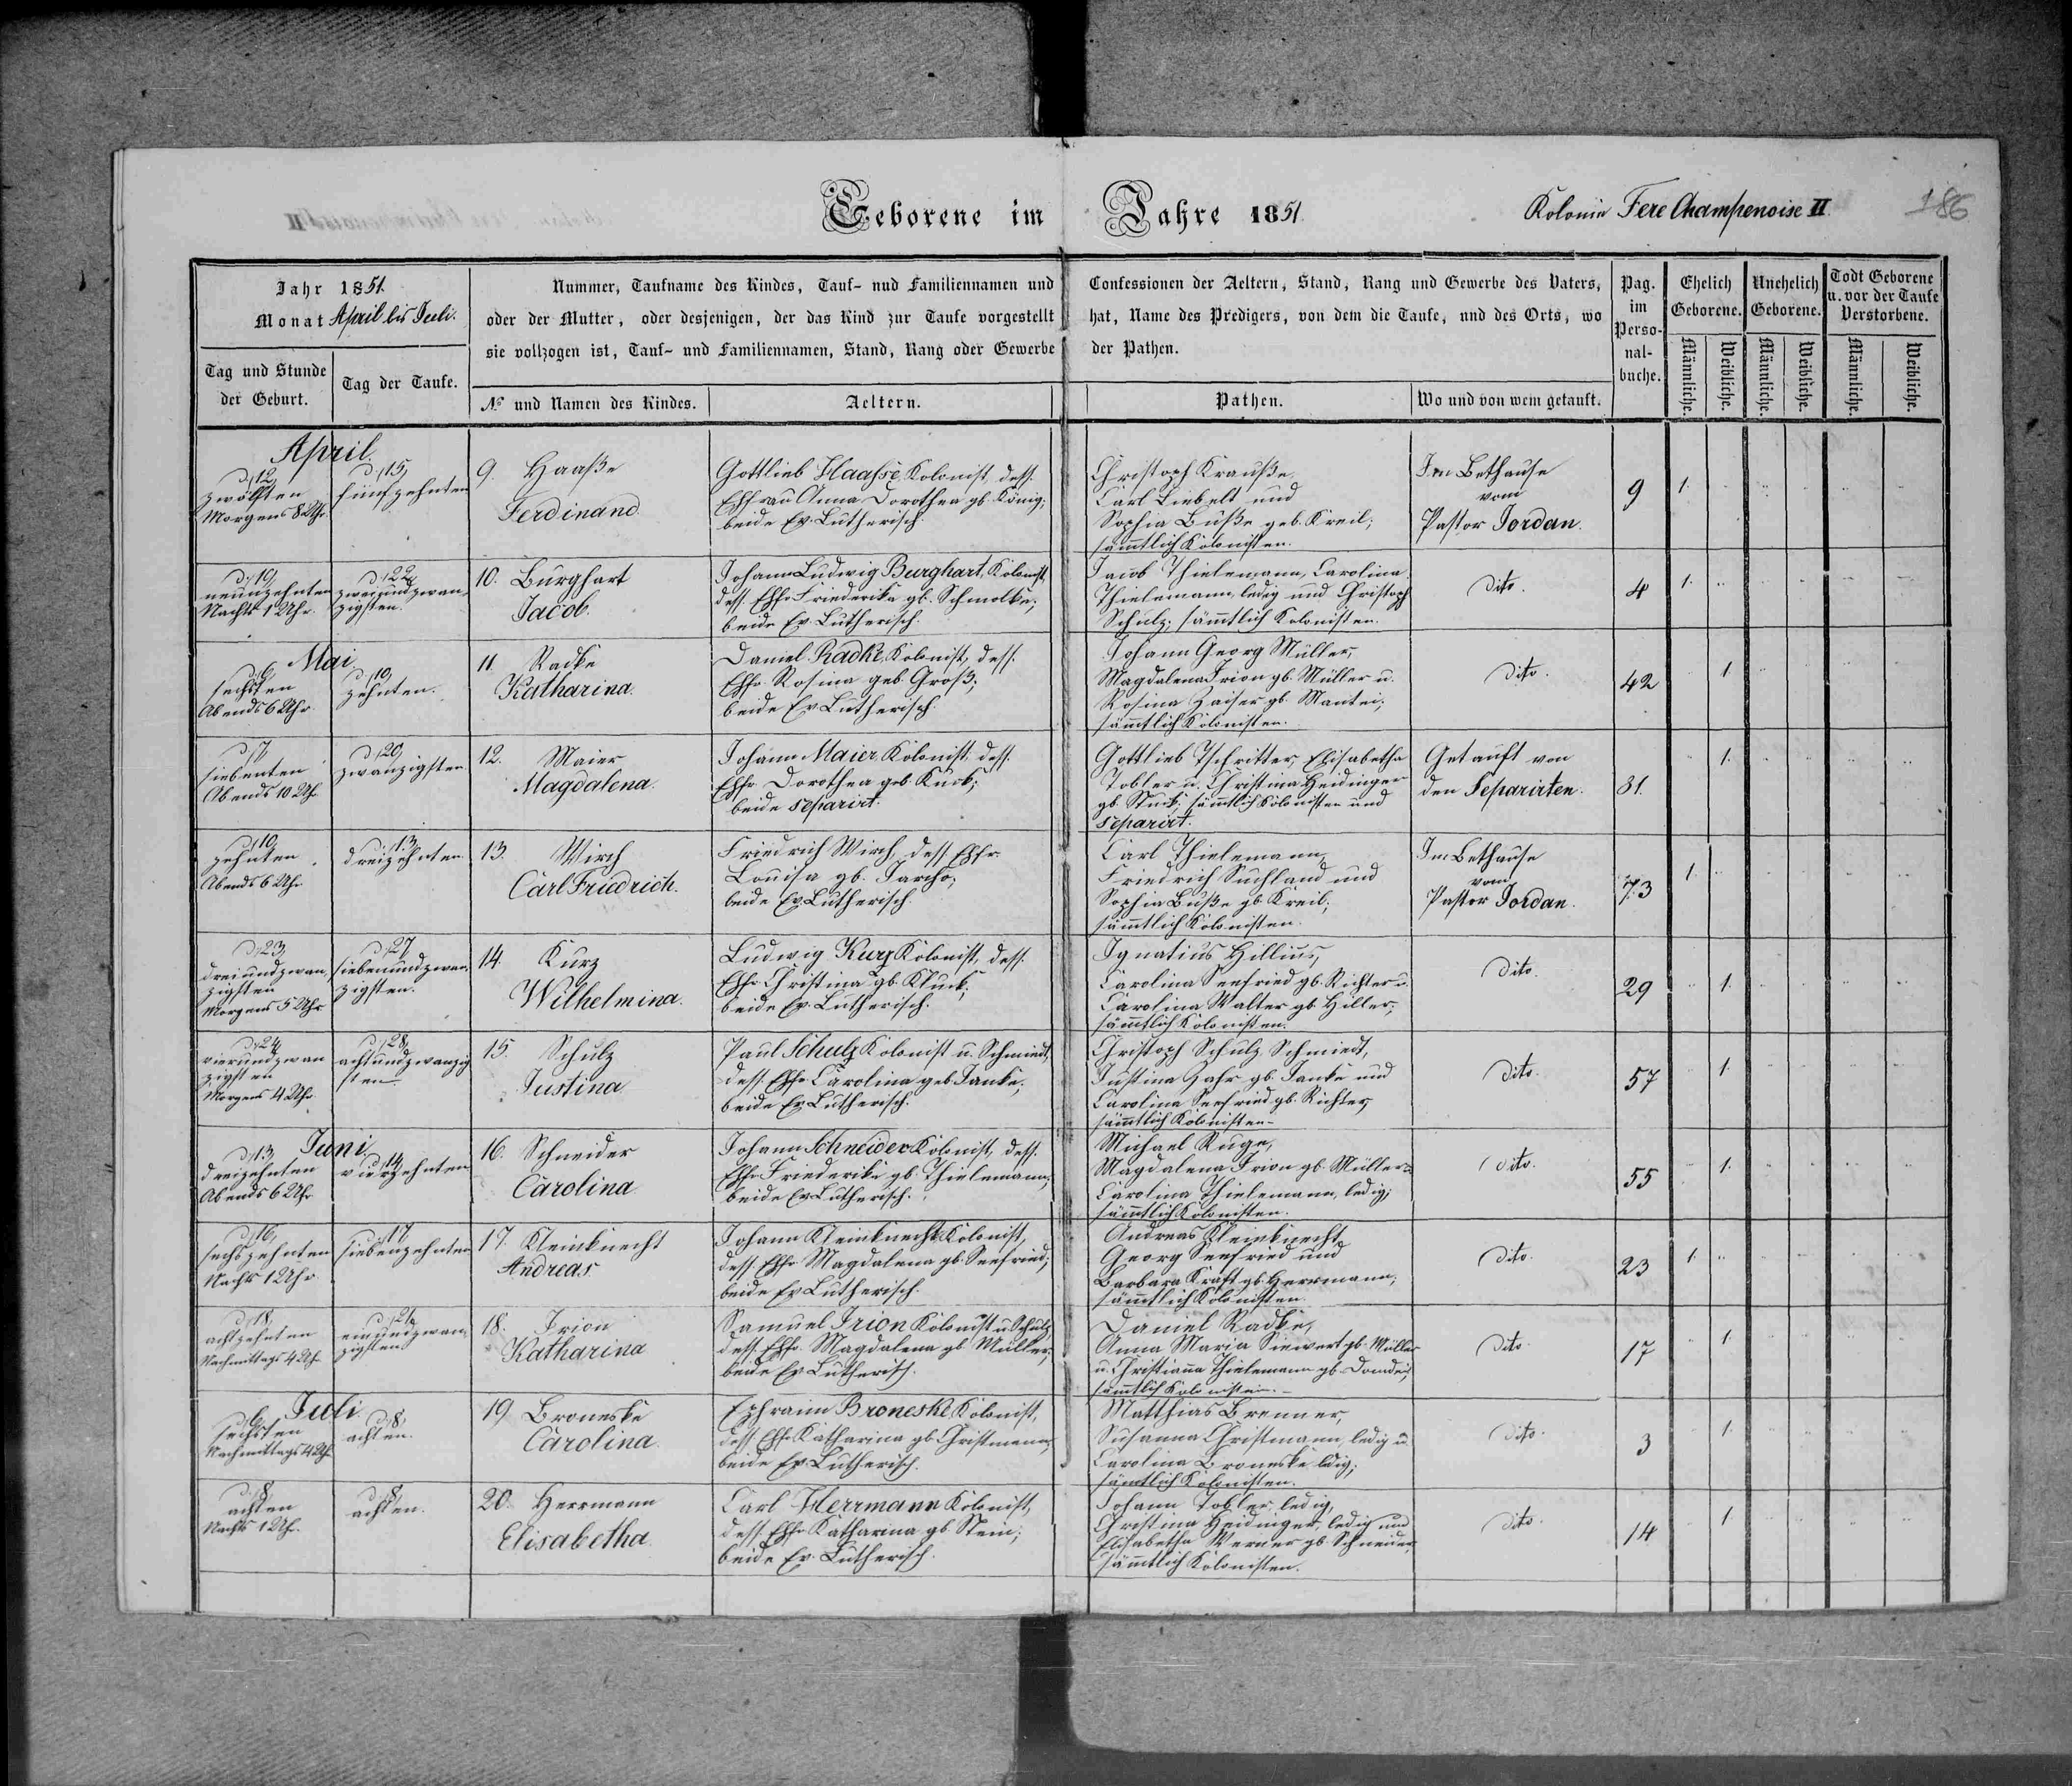 Geborene im Jahre 1851.
Kolonie Fere Champenoise II
186
Jahr 1851.
Monat April bis Juli.
Tag und Stunde der Geburt.
Tag der Taufe.
Nummer, Taufname des Kindes, Tauf- und Familiennamen und
oder der Mutter, oder desjenigen, der das Kind zur Taufe vorgestellt
sie vollzogen ist, Tauf- und Familiennamen, Stand, Rang oder Gewerbe
No und Namen des Kindes.
Aeltern.
Confessionen der Aeltern, Stand, Rang und Gewerbe des Vaters,
hat, Name des Predigers, von dem die Taufe, und des Orts, wo
der Pathen.
Pathen.
Wo und von wem getauft.
Pag. im Perso-nal-buche.
Ehelich Geborene.
Unehelich Geborene.
Todt Geborene u. vor der Taufe Verstorbene.
Männliche.
Weibliche.
Männliche.
Weibliche.
Männliche.
Weibliche.
April.
d. 12,
zwölften
Morgens 8 Uhr.
d. 15,
fünfzehnten
9. Haaße
Ferdinand.
Gottlieb Haasse, Kolonist, dess.
Ehfrau Anna Dorothea gb. König;
beide Ev. Lutherisch.
Christoph Krauße,
Carl Liebelt und
Sophia Buße geb. Kreil;
sämmtlich Kolonisten.
Im Bethause
vom
Pastor Jordan.
9
1.
d. 19,
neunzehnten
Nachts 1 Uhr.
d. 22,
zweiundzwan-
zigsten.
10. Burghart
Jacob.
Johann Ludwig Burghart, Kolonist,
dess. Ehfr. Friederika gb. Schmolke;
beide Ev. Lutherisch.
Jacob Thielemann, Carolina
Thielemann, ledig und Christoph
Schulz; sämmtlich Kolonisten.
dito.
4
1.
Mai.
d. 6,
sechsten
Abends 6 Uhr
d. 10,
zehnten.
11. Radke
Katharina.
Daniel Radke, Kolonist, dess.
Ehfr. Rosina geb. Groß;
beide Ev. Lutherisch.
Johann Georg Müller,
Magdalena Irion gb. Müller u.
Rosina Zaiser gb. Mantei;
sämmtlich Kolonisten.
dito.
42
1
d. 7,
siebenten
Abends 10 Uhr.
d. 20,
zwanzigsten
12. Maier
Magdalena.
Johann Maier, Kolonist, dess.
Ehfr. Dorothea geb. Kuck;
beide separirt.
Gottlieb Tschritter, Elisabetha
Tobler u. Christina Heidinger
gb. Stuck; sämmtlich Kolonisten und
separirt.
Getauft von
den Separirten.
31.
1.
d. 10,
zehnten
Abends 6 Uhr
d. 13,
dreizehnten
13. Wirch
Carl Friedrich.
Friedrich Wirch, dess. Ehfr.
Louisa gb. Jarcho;
beide Ev. Lutherisch.
Carl Thielemann,
Friedrich Suchland und
Sophia Buße gb. Kreil;
sämmtlich Kolonisten.
Im Bethause
vom
Pastor Jordan.
73
1.
d. 23,
dreiundzwan-
zigsten
Morgens 5 Uhr
d. 27,
siebenundzwan-
zigsten.
14. Kurz
Wilhelmina.
Ludwig Kurz Kolonist, dess.
Ehfr. Christina gb. Kluck;
beide Ev. Lutherisch.
Ignatius Hillius,
Carolina Seefried gb. Richter u.
Carolina Walter gb. Hiller;
sämmtlich Kolonisten.
dito.
29
1.
d. 24,
vierundzwan
zigsten
Morgens 4 Uhr
d. 28,
achtundzwanzig
sten
15. Schulz
Justina
Paul Schulz Kolonist u. Schmiedt,
dess. Ehfr. Carolina geb. Janke;
beide Ev. Lutherisch.
Christoph Schulz, Schmiedt,
Justina Zahr gb. Janke und
Carolina Seefried gb. Richter,
sämmtlich Kolonisten.
dito.
57
1.
Juni
d. 13,
dreizehnten
Abends 6 Uhr
d. 14,
vierzehnten
16. Schneider
Carolina
Johann Schneider Kolonist, dess.
Ehfr. Friederike gb. Thielemann;
beide Ev. Lutherisch.
Michael Ruge,
Magdalena Irion gb. Müller u.
Carolina Thielemann, ledig;
sämmtlich Kolonisten.
dito.
55
1.
d. 16,
sechszehnten
Nachts 1 Uhr
d. 17,
siebenzehnten
17. Kleinknecht
Andreas
Johann Kleinknecht Kolonist,
dess. Ehfr. Magdalena gb. Seefried;
beide Ev. Lutherisch.
Andreas Kleinknecht,
Georg Seefried und
Barbara Kraft gb. Herrmann;
sämmtlich Kolonisten.
dito.
23
1.
d. 18,
achtzehnten
Nachmittags 4 Uhr
d. 21,
einundzwan-
zigsten
18. Irion
Katharina
Samuel Irion Kolonist u. Schulz,
dess. Ehfr. Magdalena gb. Müller;
beide Ev. Lutherisch.
Daniel Radke,
Anna Maria Siewert gb. Müller
u. Christianna Thielemann gb. Domdei;
sämmtlich Kolonisten.
dito.
17
1
Juli
d. 6,
sechsten
Nachmittags 4 Uhr
d. 8,
achten.
19. Broneske
Carolina.
Ephraim Broneske, Kolonist,
dess. Ehfr. Katharina gb. Christmann;
beide Ev. Lutherisch.
Matthias Brenner,
Susanna Christmann, ledig u.
Carolina Broneske, ledig;
sämmtlich Kolonisten.
dito.
3
1.
d. 8,
achten
Nachts 1 Uhr.
d. 8,
achten.
20. Herrmann
Elisabetha
Carl Herrmann Kolonist,
dess. Ehfr. Katharina gb. Stein;
beide Ev. Lutherisch.
Johann Tobler, ledig,
Christina Heidinger, ledig und
Elisabetha Werner gb. Schneider,
sämmtlich Kolonisten.
dito.
14
1.